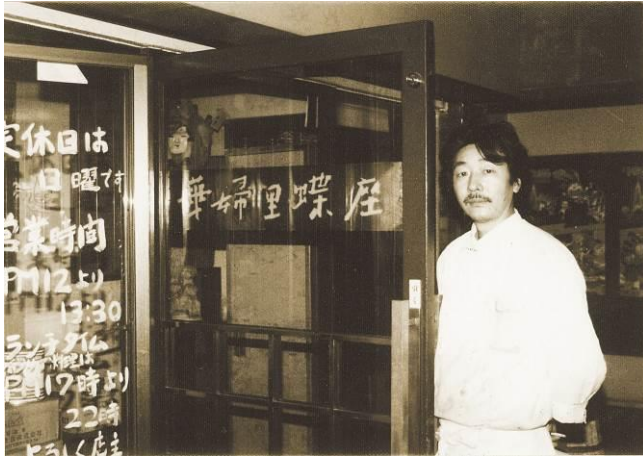 定休日は
日曜です
営業時間
12より
13:30
ランチタイム
17時より
22時
よろしく店主
華婦里蝶座